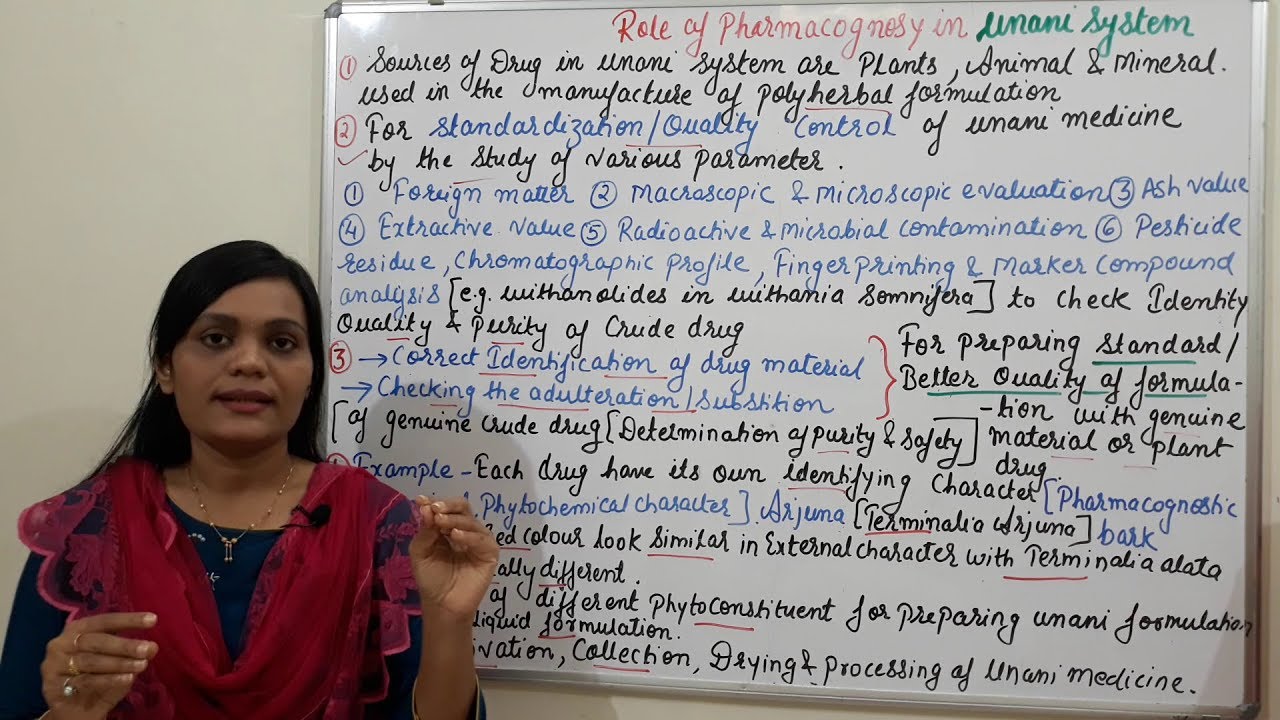 Role of Pharmacognosy in Unani System
① Sources of Drug in Unani System are Plants, Animal & Mineral.
used in the manufacture of polyherbal formulation
② For Standardization/Quality Control of Unani medicine
by the study of various parameter.
① Foreign matter ② Macroscopic & Microscopic evaluation ③ Ash value
④ Extractive value ⑤ Radioactive & Microbial contamination ⑥ Pesticide
residue, Chromatographic Profile, Fingerprinting & Marker Compound
analysis [e.g. withanolides in withania somnifera] to check Identity
Quality & Purity of Crude drug
③ → Correct Identification of drug material
→ Checking the adulteration/substition
For preparing standard/
Better Quality of formula-
-tion with genuine
material or plant
drug
[of genuine crude drug [Determination of Purity & Safety]
Example - Each drug have its own identifying Character [Pharmacognostic
Phytochemical character]. Arjuna [Terminalia Arjuna] bark
colour look Similar in External character with Terminalia alata
different.
of different Phytoconstituent for preparing unani formulation
liquid formulation.
Collection, Drying & Processing of Unani medicine.